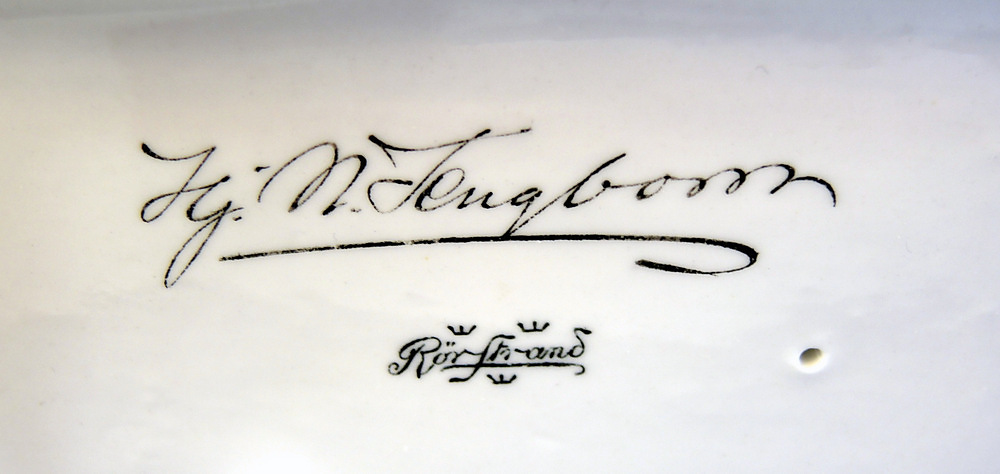 Hj. N. Tengbom
Rörstrand